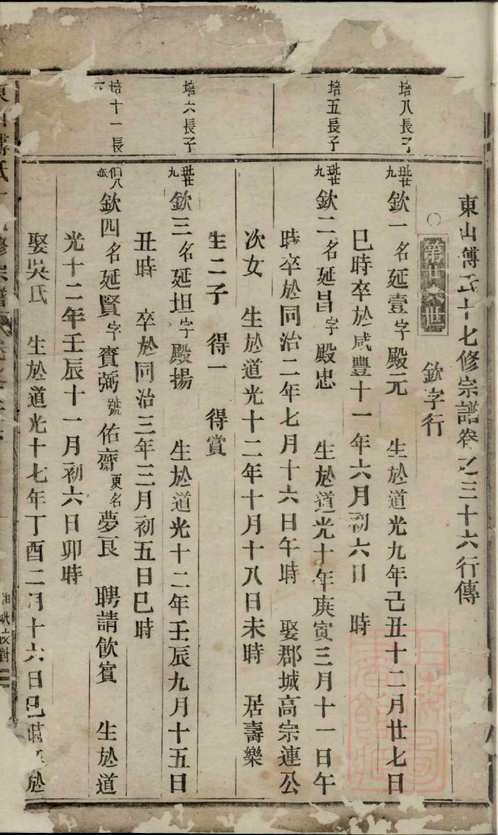 東山傅氏十七修宗譜卷之三十六行傳
第廿六世
欽字行
培八長子
欽一名延壹字殿元 生於道光九年己丑十二月廿七日
巳時卒於咸豐十一年六月初六日 時
培五長子
欽二名延昌字殿忠 生於道光十年庚寅三月十一日午
時卒於同治二年七月十六日午時 娶郡城高宗連公
次女 生於道光十二年十月十八日未時 居壽樂
生二子 得一 得賞
培六長子
欽三名延坦字殿揚 生於道光十二年壬辰九月十五日
丑時 卒於同治三年三月初五日巳時
培十一長
欽四名延賢字賚弼號佑齋更名夢良 聘請飲賓 生於道
光十二年壬辰十一月初六日卯時
娶吳氏 生於道光十七年丁酉二月十六日巳時 於